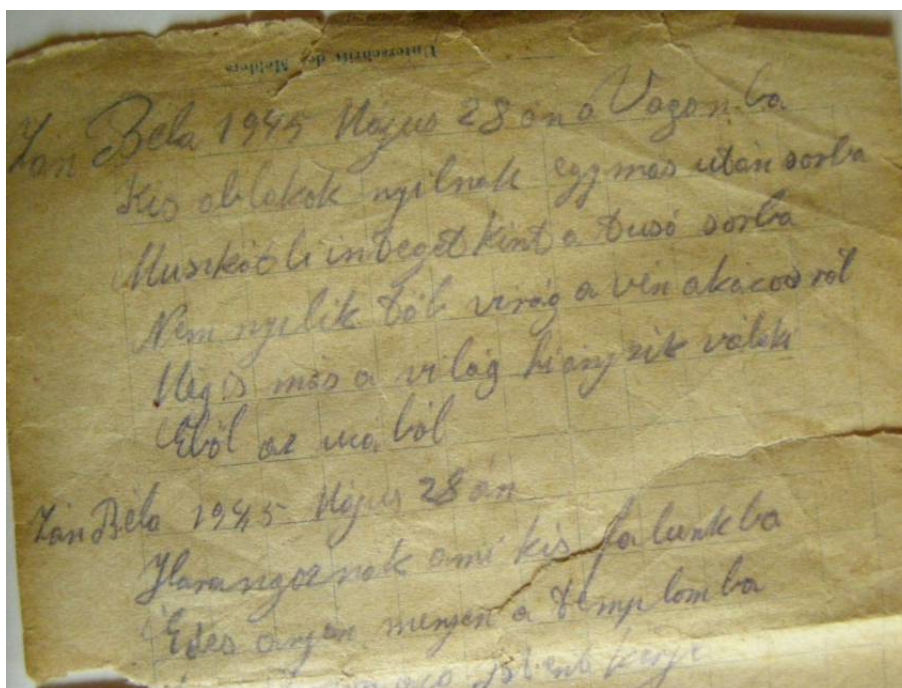 Unterschrift des Melders
Zán Béla 1945 Május 28 án a Vagonba
Kis ablakok nyilnak egymás után sorba
Muszkátli integet kint a tusó sorba
Nem nyilik töb virág a vén akacosról
Mégis más a világ hiányzik valaki
Eböl az uca ból
Zán Béla 1945 Május 28 án
Harangoznak ami kis falunkba
Édes anyám menyen a templomba